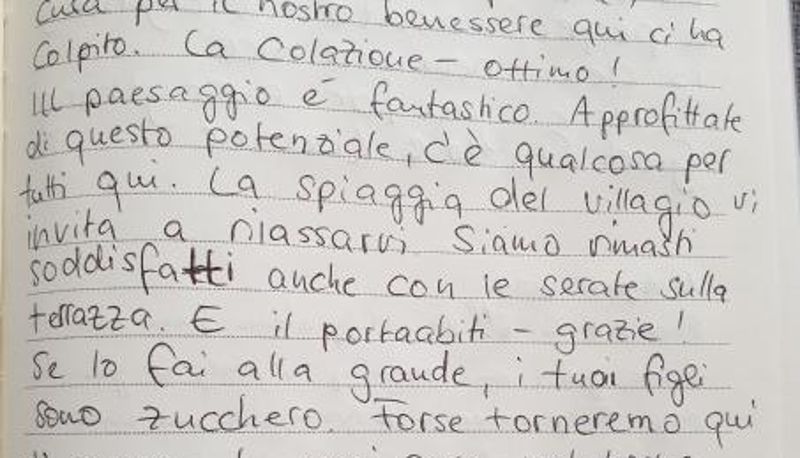 cura per il nostro benessere qui ci ha
Colpito. La Colazione – ottimo!
Ill paesaggio é fantastico. Approfittate
di questo potenziale, c'è qualcosa per
tutti qui. La spiaggia del villagio vi
invita a rilassarvi Siamo rimasti
soddisfatti anche con le serate sulla
terrazza. E il portaabiti – grazie!
Se lo fai alla grande, i tuoi figli
sono zucchero. Forse torneremo qui